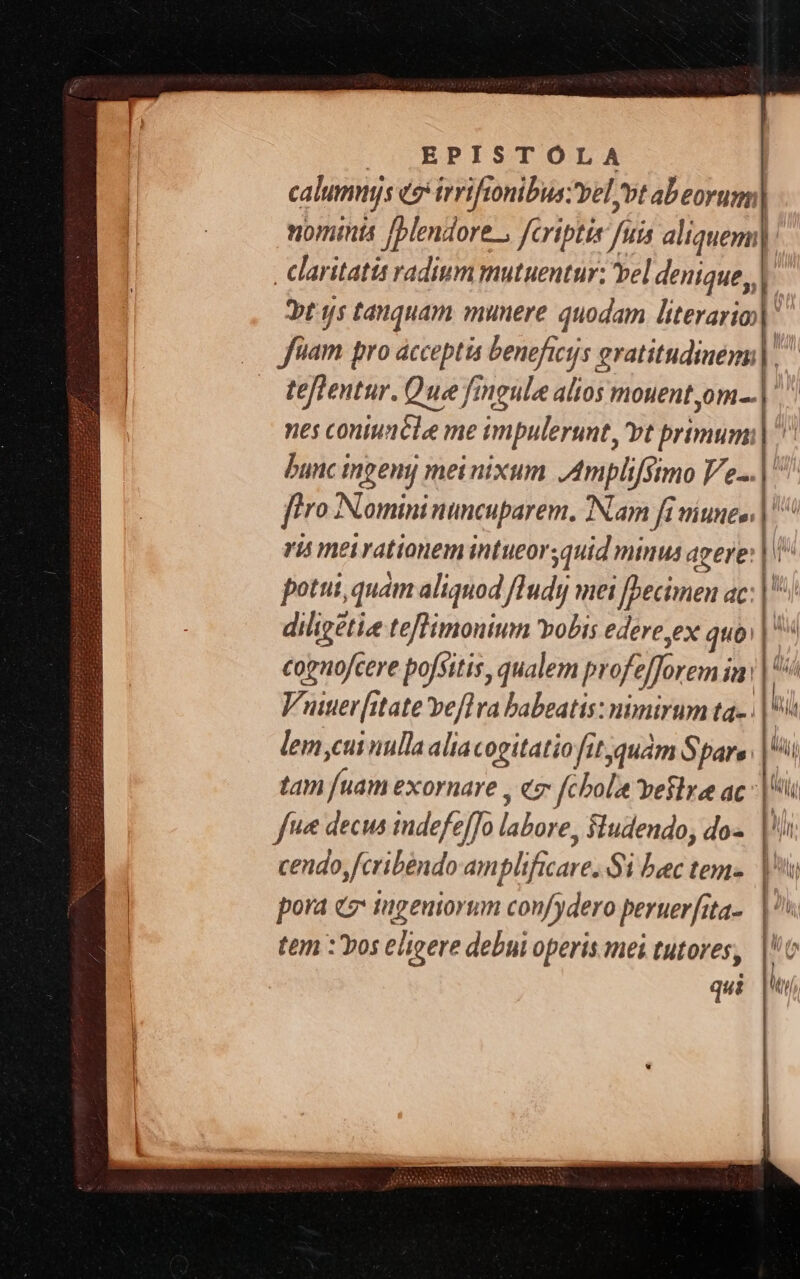 EPISTOLA
calumnijs & irrisionibus: vel, vt ab eorum
nominis splendore, scriptis suis aliquem
claritatis radium mutuentur: vel denique,
vt ijs tanquam munere quodam literario
suam pro acceptis beneficijs gratitudinem
testentur. Quæ singulæ alios mouent, om-
nes coniunctæ me impulerunt, vt primum
hunc ingenij mei nixum Amplissimo Ve-
stro Nomini nuncuparem. Nam si mune-
ris mei rationem intueor, quid minus agere
potui, quàm aliquod studij mei specimen ac
diligētiæ testimonium vobis edere, ex quo
cognoscere possitis, qualem professorem in
Vniuersitate vestra habeatis: nimirum ta-
lem, cui nulla alia cogitatio sit, quàm Spar-
tam suam exornare, & scholæ vestræ ac
suæ decus indefesso labore, studendo, do-
cendo, scribendo amplificare. Si hæc tem-
pora & ingeniorum consydero peruersita-
tem: vos eligere debui operis mei tutores,
qui